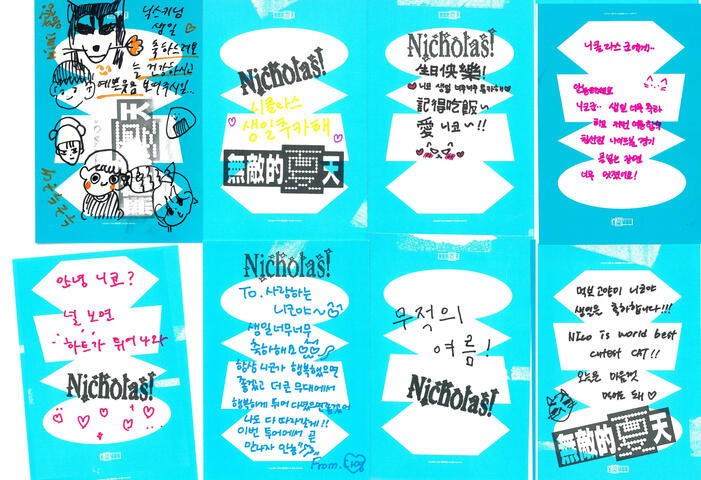 닉스키님
생일
축하드려요
늘 건강하시고
예쁜웃음 보여주시길...
Nicholas!
니콜라스
생일축하해
無敵的夏天
Nicholas!
生日快樂!
니코 생일 너무너무 축하해
記得吃飯~
愛 니코~!!
니콜라스 군에게..
안녕하세요
니코군.. 생일 너무 축하
너무 멋졌어요!
안녕 니코?
널 보면
하트가 튀어나와
Nicholas!
Nicholas!
To. 사랑하는
니코야~
생일너무너무
축하해
항상 니코가 행복했으면
좋겠고 더 큰 무대에서
행복하게 뛰어 다녔으면좋겠어
나도 다 따라갈게!!
이번 투어에서 곧
만나자 안녕
From.
무적의
여름!
Nicholas!
먹보고양이 니코야
생일을 축하합니다!!!
Nico is world best
cutest CAT!!
오늘은 마음껏
먹어도 돼
無敵的夏天